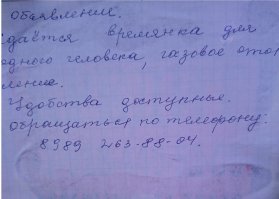 Обаявление.
даётся времянка для
одного человека, газовое отоп
ление.
Удобства доступные.
обращаться по телефону:
8989 263-88-04.